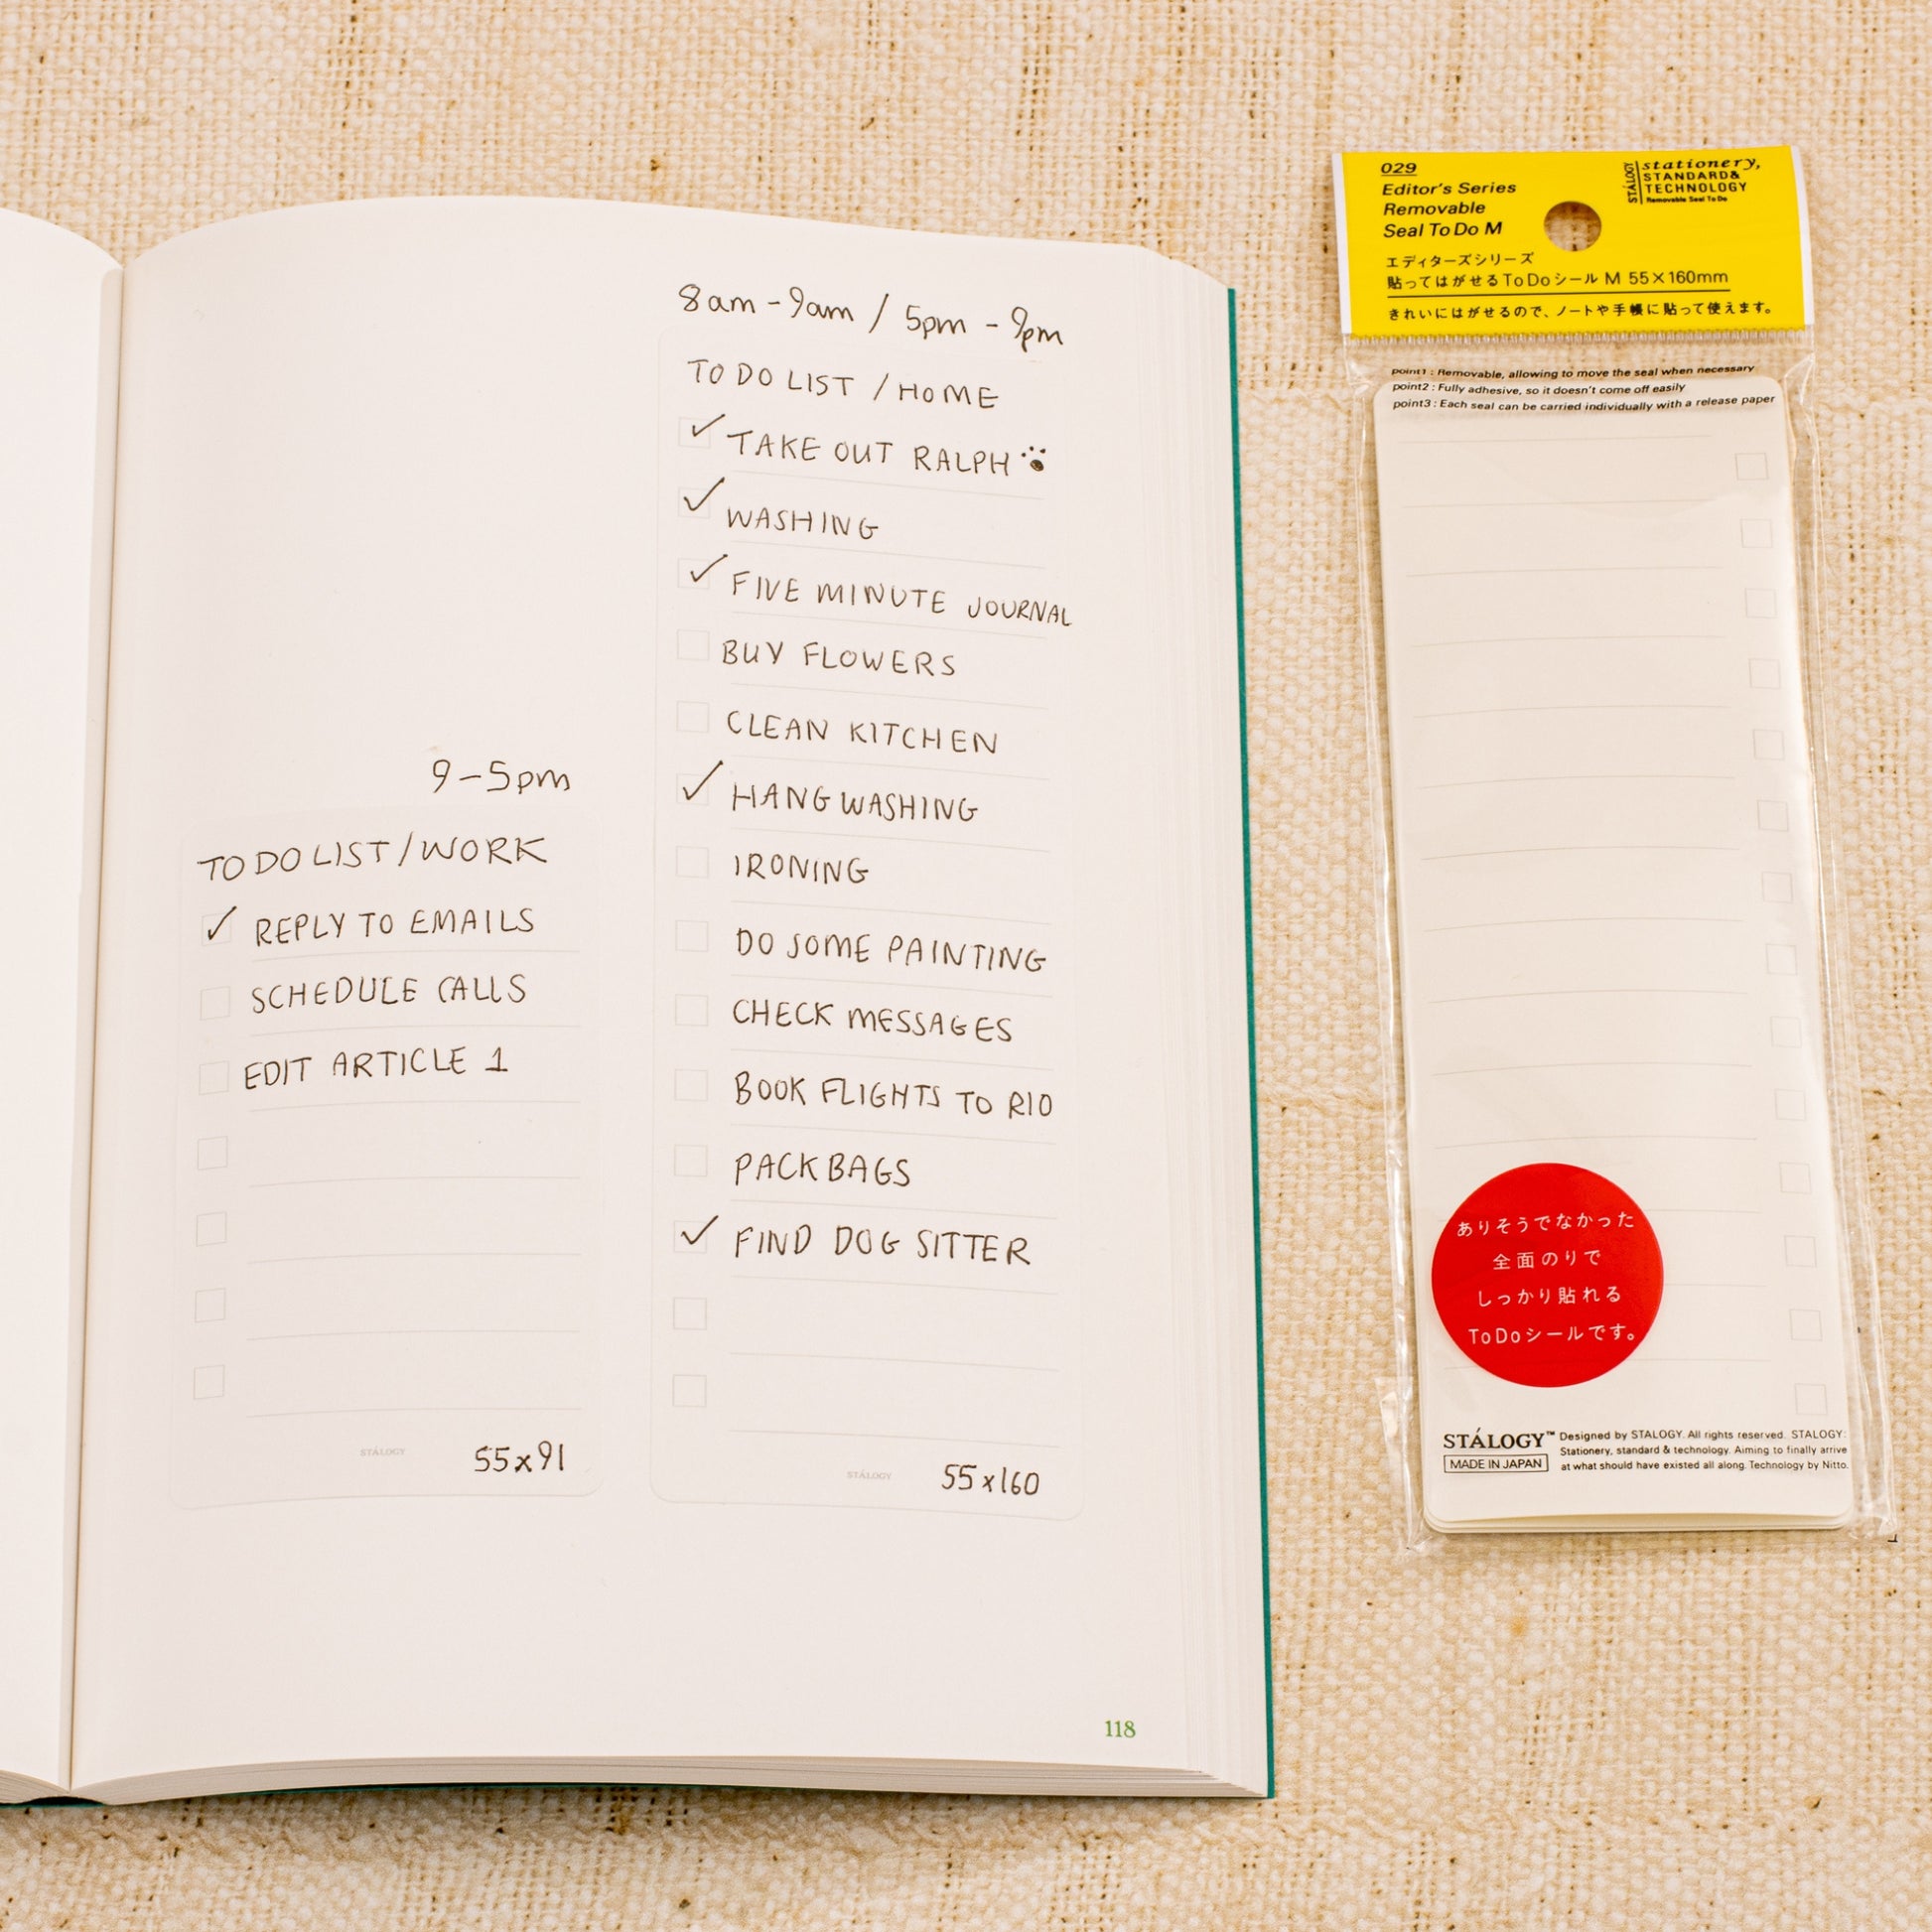 9-5pm
TO DO LIST/WORK
REPLY TO EMAILS
SCHEDULE CALLS
EDIT ARTICLE 1
STÁLOGY
55x91
8am-9am / 5pm - 9pm
TO DO LIST / HOME
TAKE OUT RALPH
WASHING
FIVE MINUTE JOURNAL
BUY FLOWERS
CLEAN KITCHEN
HANG WASHING
IRONING
DO SOME PAINTING
CHECK MESSAGES
BOOK FLIGHTS TO RIO
PACK BAGS
FIND DOG SITTER
STÁLOGY
55x160
118
029
Editor's Series
Removable
Seal To Do M
STÁLOGY
stationery,
STANDARD&
TECHNOLOGY
Removable Seal To Do
エディターズシリーズ
貼ってはがせるToDoシール M 55×160mm
きれいにはがせるので、ノートや手帳に貼って使えます。
point1 : Removable, allowing to move the seal when necessary
point2 : Fully adhesive, so it doesn't come off easily
point3 : Each seal can be carried individually with a release paper
ありそうでなかった
全面のりで
しっかり貼れる
ToDoシールです。
STÁLOGY™
MADE IN JAPAN
Designed by STALOGY. All rights reserved. STALOGY:
Stationery, standard & technology. Aiming to finally arrive
at what should have existed all along. Technology by Nitto.